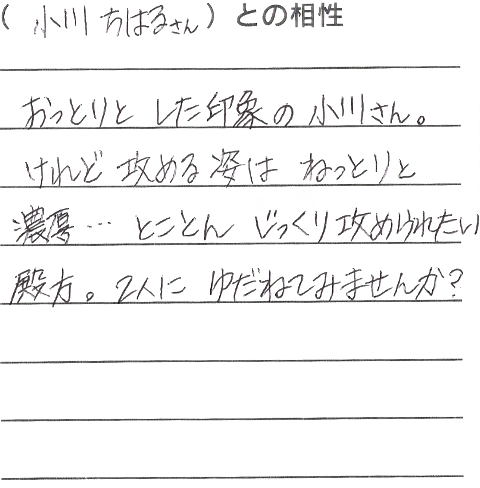 (小川 ちはるさん)との相性
おっとりと した印象の 小川さん。
けれど 攻める姿は ねっとりと
濃厚… とことん じっくり攻められたい
殿方。2人に ゆだねてみませんか?